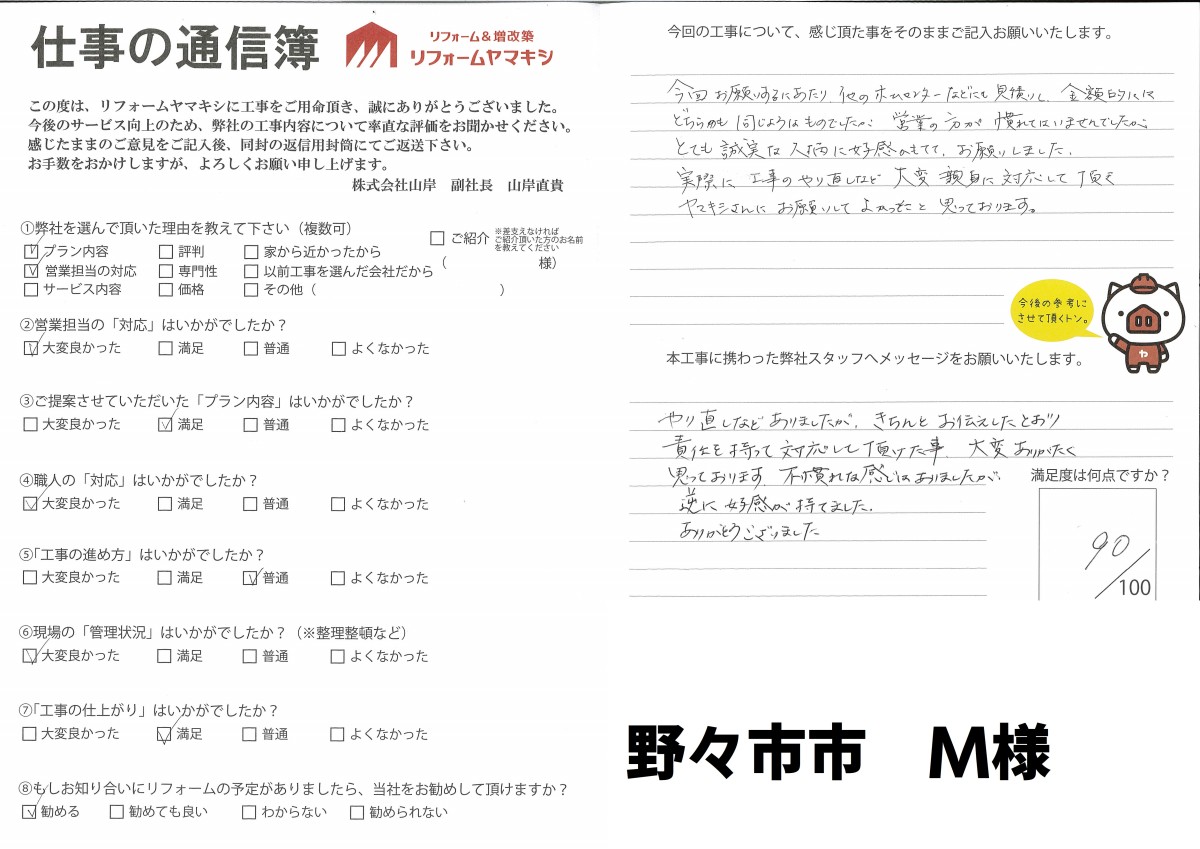 仕事の通信簿
リフォーム&増改築
リフォームヤマキシ
この度は、リフォームヤマキシに工事をご用命頂き、誠にありがとうございました。
今後のサービス向上のため、弊社の工事内容について率直な評価をお聞かせください。
感じたままのご意見をご記入後、同封の返信用封筒にてご返送下さい。
お手数をおかけしますが、よろしくお願い申し上げます。
株式会社山岸 副社長 山岸直貴
①弊社を選んで頂いた理由を教えて下さい（複数可）
プラン内容 評判 家から近かったから
営業担当の対応 専門性 以前工事を選んだ会社だから
サービス内容 価格 その他（ ）
ご紹介 ※差支えなければ
ご紹介頂いた方のお名前
を教えてください
（ 様）
②営業担当の「対応」はいかがでしたか？
大変良かった 満足 普通 よくなかった
③ご提案させていただいた「プラン内容」はいかがでしたか？
大変良かった 満足 普通 よくなかった
④職人の「対応」はいかがでしたか？
大変良かった 満足 普通 よくなかった
⑤「工事の進め方」はいかがでしたか？
大変良かった 満足 普通 よくなかった
⑥現場の「管理状況」はいかがでしたか？（※整理整頓など）
大変良かった 満足 普通 よくなかった
⑦「工事の仕上がり」はいかがでしたか？
大変良かった 満足 普通 よくなかった
⑧もしお知り合いにリフォームの予定がありましたら、当社をお勧めして頂けますか？
勧める 勧めても良い わからない 勧められない
今回の工事について、感じ頂た事をそのままご記入お願いいたします。
今回お願いするにあたり、他のホームセンターなどにも見積りし、金額的には
どちらかも同じようなものでしたが 営業の方が慣れてはいませんでしたが、
とても誠実な人柄に好感がもてて、お願いしました。
実際に工事のやり直しなど大変親身に対応して頂く
ヤマキシさんにお願いしてよかったと思っております。
今後の参考に
させて頂くトン。
や
本工事に携わった弊社スタッフへメッセージをお願いいたします。
やり直しなどありましたが、きちんとお伝えしたとおり
責任を持って対応して頂けた事、大変ありがたく
思っております 不慣れな感じはありましたが
逆に好感が持てました。
ありがとうございました
満足度は何点ですか？
90/100
野々市市 M様